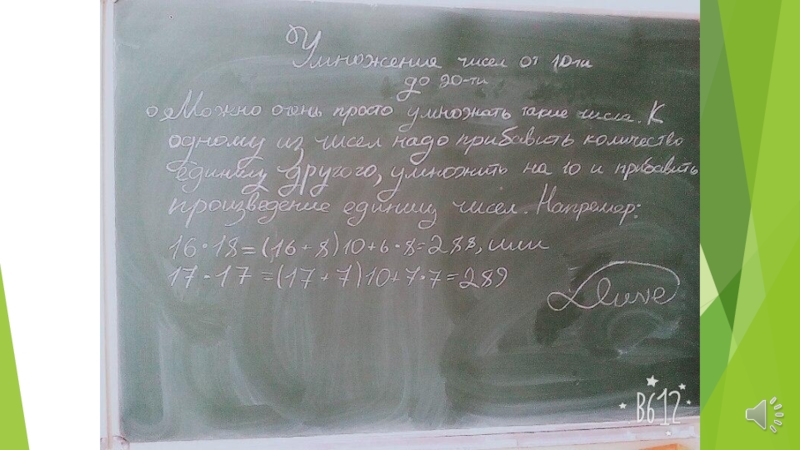 Умножения чисел от 10-ти
до 20-ти
Можно очень просто умножать такие числа. К
одному из чисел надо прибавить количество
единиц другого, умножить на 10 и прибавить
произведение единиц чисел. Например:
16·18=(16+8)10+6·8=288, или
17·17=(17+7)10+7·7=289
B612